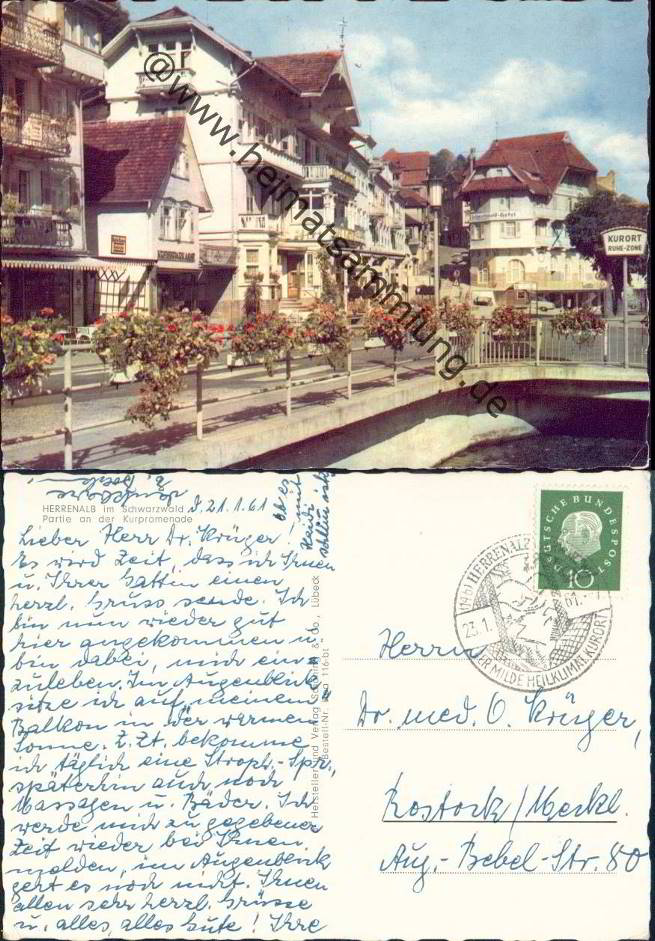 © www.heimatsammlung.de
KURORT
RUHE-ZONE
HERRENALB im Schwarzwald
Partie an der Kurpromenade
d. 21.1.61
Lieber Herr Dr. Krüger!
Es wird Zeit, dass ich Ihnen
u. Ihrer Gattin einen
herzl. Gruss sende. Ich
bin nun wieder gut
hier angekommen u.
bin dabei, mich ein-
zuleben. Im Augenblick
sitze ich auf meinem
Balkon in der warmen
Sonne. Z. Zt. bekomme
ich täglich eine Stroph.-Spr.,
späterhin auch noch
Massagen u. Bäder. Ich
werde mich zu gegebener
Zeit wieder bei Ihnen
melden, im Augenblick
geht es noch nicht. Ihnen
allen sehr herzl. Grüsse
u. alles, alles Gute! Ihre
Hersteller und Verlag Schöning & Co., Lübeck
DEUTSCHE BUNDESPOST
10
HERRENALB
23.1.
61.
DER MILDE HEILKLIMAT. KURORT
Herrn
Dr. med. O. Krüger,
Rostock/Meckl.
Aug.-Bebel-Str. 80